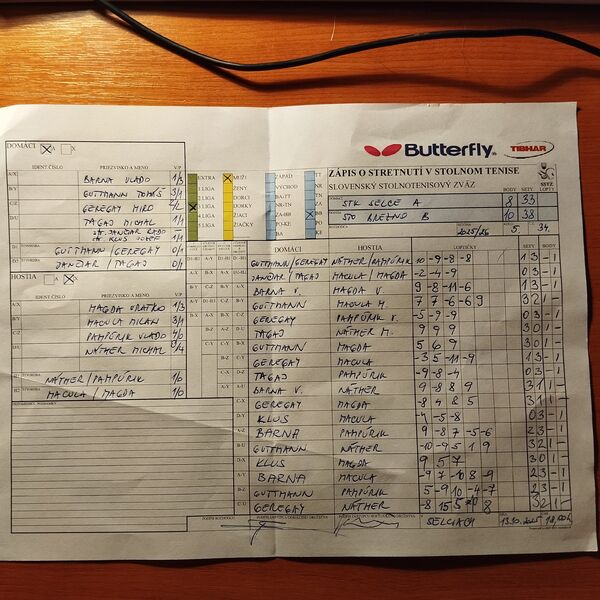 Butterfly
TIBHAR
ZÁPIS O STRETNUTÍ V STOLNOM TENISE
SLOVENSKÝ STOLNOTENISOVÝ ZVÄZ
SSTZ
BODY SETY
STK SELCE A 8 33
STO BREZNO B 10 38
2025/26 5. 34.
DOMÁCI A X
IDENT ČÍSLO PRIEZVISKO A MENO V/P
A/X BARNA VLADO 1/3
B/Y GUTTMANN TOMÁŠ 3/1
C/Z GEREGAY MIRO 2/2
D/U TAGAJ MICHAL 1/1
KLUS JOZEF 1/1
GUTTMANN/GEREGAY 0/1
JANČIAR/TAGAJ 0/1
HOSTIA A X
IDENT ČÍSLO PRIEZVISKO A MENO V/P
MAGDA VRATKO 1/3
MACULA MILAN 3/1
PAMPÚRIK VLADO 4/0
NÁTHER MICHAL
NÁTHER/PAMPÚRIK 1/0
MACULA/MAGDA 1/0
EXTRA
1 LIGA
2 LIGA
3 LIGA
4 LIGA
5 LIGA
MUŽI
ŽENY
DORCI
DORKY
ŽIACI
ŽIAČKY
ZÁPAD
VÝCHOD
BA-TT
NR-TN
ZA-BB
PO-KE
DOMÁCI HOSTIA LOPTIČKY SETY LOPT
GUTTMANN/GEREGAY NÁTHER/PAMPÚRIK 10 -9 -8 -8 1 3 -1
JANČIAR/TAGAJ MACULA/MAGDA -2 -4 -9 0 3 -1
BARNA V. MAGDA V. 9 -8 -11 -6 1 3 -1
GUTTMANN MACULA M. 7 7 -6 -6 9 3 2 1 -
GEREGAY PAMPÚRIK V. -5 -9 -9 0 3 -1
TAGAJ NÁTHER M. 9 9 9 3 0 1 -
GUTTMANN MAGDA 5 6 9 3 0 1 -
GEREGAY MACULA -3 5 -11 -9 1 3 -1
TAGAJ PAMPÚRIK -9 -8 -4 0 3 -1
BARNA V. NÁTHER 9 -8 8 9 3 1 1 -
GEREGAY MAGDA -8 4 8 5 3 1 1 -
KLUS MACULA -7 -5 -8 0 3 -1
BARNA PAMPÚRIK 9 -8 7 -5 -6 2 3 -1
GUTTMANN NÁTHER -10 -9 5 1 9 3 2 1 -
KLUS MAGDA 9 5 7 3 0 1 -
BARNA MACULA -9 7 -10 8 -9 2 3 -1
GUTTMANN PAMPÚRIK 5 -9 10 -4 -7 2 3 -1
GEREGAY NÁTHER 3 2 1 -
SELCIACH 13.10.2025 18,00 h